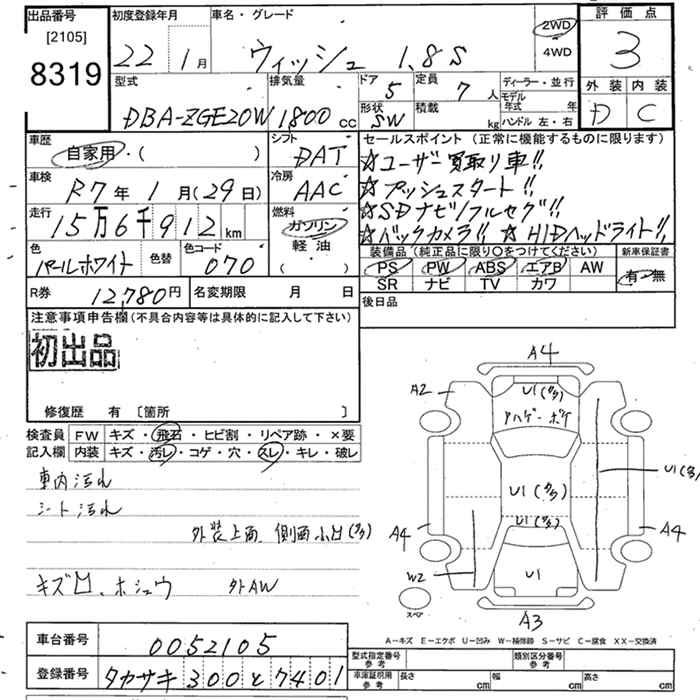 出品番号 [2105] 8319
初度登録年月 22年 1月
車名・グレード ウィッシュ 1.8S
2WD
4WD
評価点 3
外装 D 内装 C
型式 DBA-ZGE20W
排気量 1800 cc
ドア 5
定員 7人
形状 SW
積載 kg
ディーラー・並行
モデル年式 年
ハンドル 左・右
車歴 自家用・( )
シフト DAT
車検 R7年 1月(29日)
冷房 AAC
走行 15万6千912km
燃料 ガソリン 軽油 ( )
色 パールホワイト
色替
色コード 070
セールスポイント(正常に機能するものに限ります)
☆ユーザー買取り車!!
☆プッシュスタート!!
☆SDナビ/フルセグ!!
☆バックカメラ!! ☆HIDヘッドライト!!
装備品(純正品に限り○をつけてください)
PS PW ABS エアB AW
SR ナビ TV カワ
新車保証書 有・無
R券 12,780円
名変期限 月 日
後日品
注意事項申告欄(不具合内容等は具体的に記入して下さい)
初出品
修復歴 有 [箇所 ]
検査員記入欄
FW キズ・飛石・ヒビ割・リペア跡・×要
内装 キズ・汚レ・コゲ・穴・スレ・キレ・破レ
車内汚れ
シート汚れ
外装上面 側面小凹(多)
キズ凹、ホシュウ 外AW
A4
A2
U1(多)
ハゲ・ボケ
U1(多)
U1(多)
U1(多)
A4
A4
W2
U1
スペア
A3
A-キズ E-エクボ U-凹み W-補修跡 S-サビ C-腐食 XX-交換済
車台番号 0052105
登録番号 タカサキ 300 と 7401
型式指定番号 参考
類別区分番号 参考
車庫証明用 参考 長さ cm 幅 cm 高さ cm